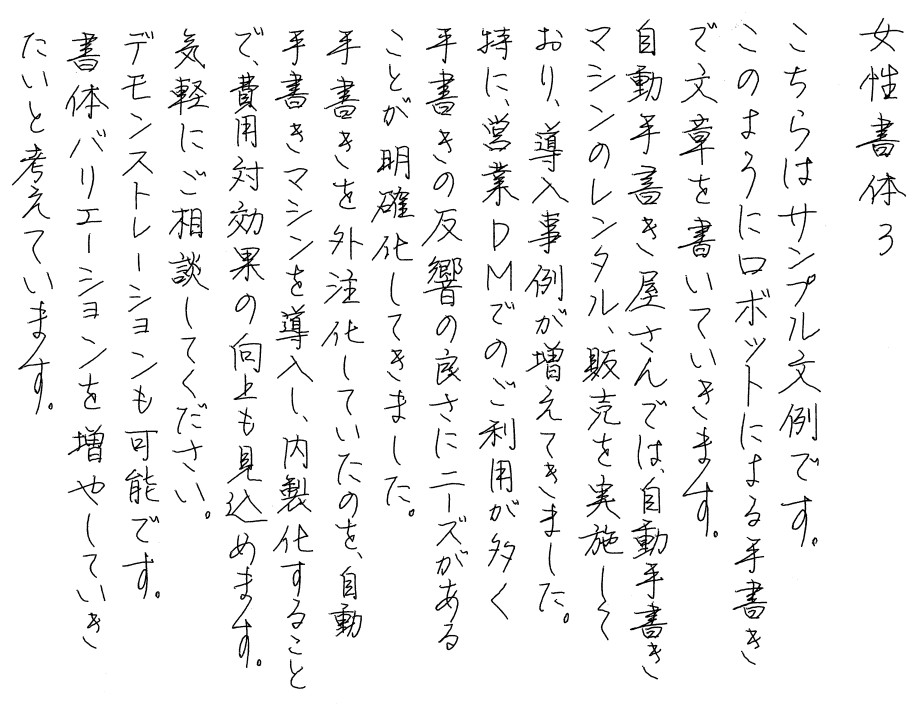 女性書体3
こちらはサンプル文例です。
このようにロボットによる手書き
で文章を書いていきます。
自動手書き屋さんでは、自動手書き
マシンのレンタル、販売を実施して
おり、導入事例が増えてきました。
特に、営業DMでのご利用が多く
手書きの反響の良さにニーズがある
ことが明確化してきました。
手書きを外注化していたのを、自動
手書きマシンを導入し、内製化すること
で、費用対効果の向上も見込めます。
気軽にご相談してください。
デモンストレーションも可能です。
書体バリエーションを増やしていき
たいと考えています。